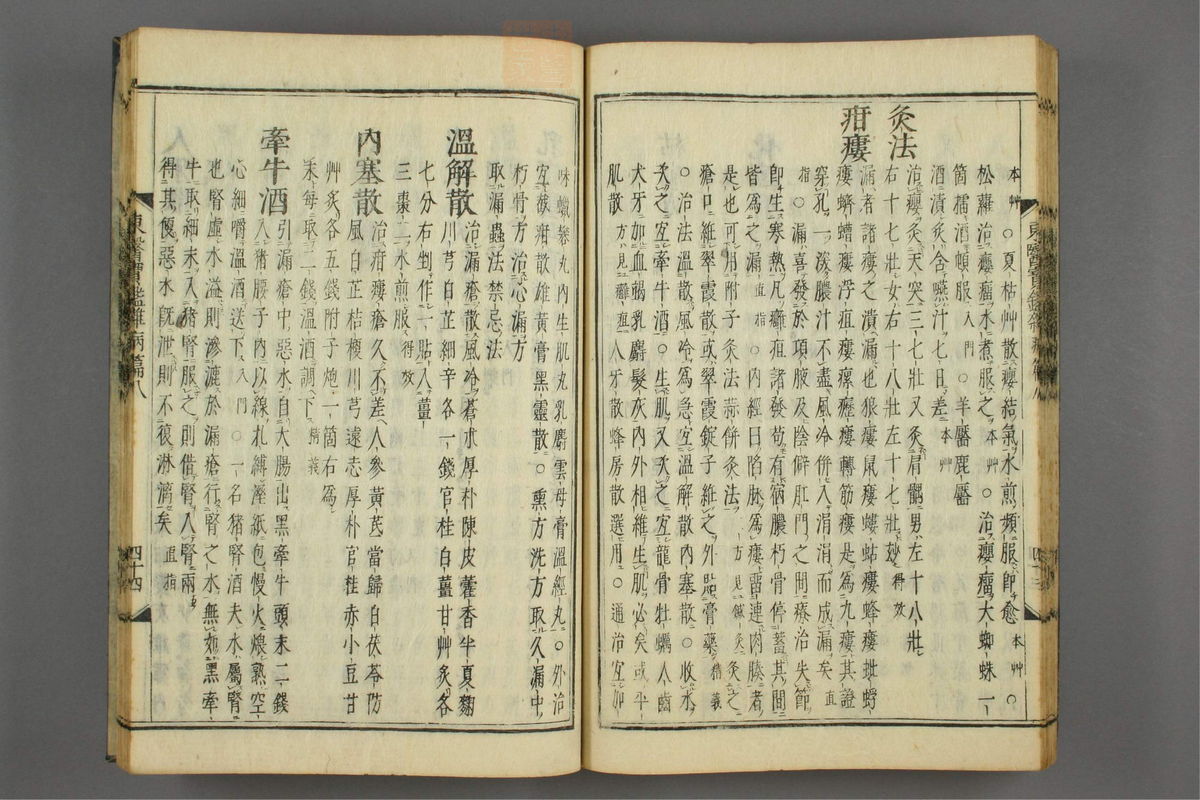 本艸○夏枯艸散癭結氣水煎頻服卽愈本艸○
松蘿治癭瘤水煮服之本艸○治癭瘤大蜘蛛一
箇擂酒頓服入門○羊靨鹿靨
酒漬炙含嚥汁七日差本艸
灸法
治癭灸天突三七壯又灸肩髃男左十八壯
右十七壯女右十八壯左十七壯玅得效
疳瘻
漏者諸瘻之潰漏也狼瘻鼠瘻螻蛄瘻蜂瘻蚍蜉
瘻蠐螬瘻浮疽瘻瘰癧瘻轉筋瘻是爲九瘻其證
穿孔一深膿汁不盡風冷倂入涓涓而成漏矣直
指○漏喜發於項腋及陰僻肛門之間療治失節
卽生寒熱凡癰疽諸發苟有宿膿朽骨停蓄其間
皆爲之漏直指○內經曰陷脉爲瘻畱連肉腠者
是也可用附子灸法蒜餠灸法方見鍼灸灸之
瘡口維翠霞散或翠霞錠子維之外貼膏藥精義
○治法溫散風冷爲急宜溫解散內塞散○收水
次之宜牽牛酒○生肌又次之宜龍骨牡蠣人齒
犬牙加血竭乳麝髮灰內外相維生肌必矣或平
肌散方見癰疽人牙散蜂房散選用○通治宜加
味蠟礬丸內生肌丸乳麝雲母膏溫經丸○外治
宜蔽疳散雄黃膏黑靈散○熏方洗方取久漏中
朽骨方治心漏方
取漏蟲法禁忌法
溫解散
治漏瘡散風冷蒼朮厚朴陳皮藿香半夏麴
川芎白芷細辛各一錢官桂白薑甘艸炙各
七分右剉作一貼入薑
三棗二水煎服得效
內塞散
治疳瘻瘡久不差人參黃芪當歸白茯苓防
風白芷桔梗川芎遠志厚朴官桂赤小豆甘
艸炙各五錢附子炮一箇右爲
末每取二錢溫酒調下精義
牽牛酒
引漏瘡中惡水自大腸出黑牽牛頭末二錢
入猪腰子內以線札縛溼紙包慢火煨熟空
心細嚼溫酒送下入門○一名猪腎酒夫水屬腎
也腎虛水溢則滲漉於漏瘡行腎之水無如黑牽
牛取細末入猪腎服之則借腎入腎兩
得其便惡水旣泄則不復淋漓矣直指
東醫寶鑑雜病篇八
四十四